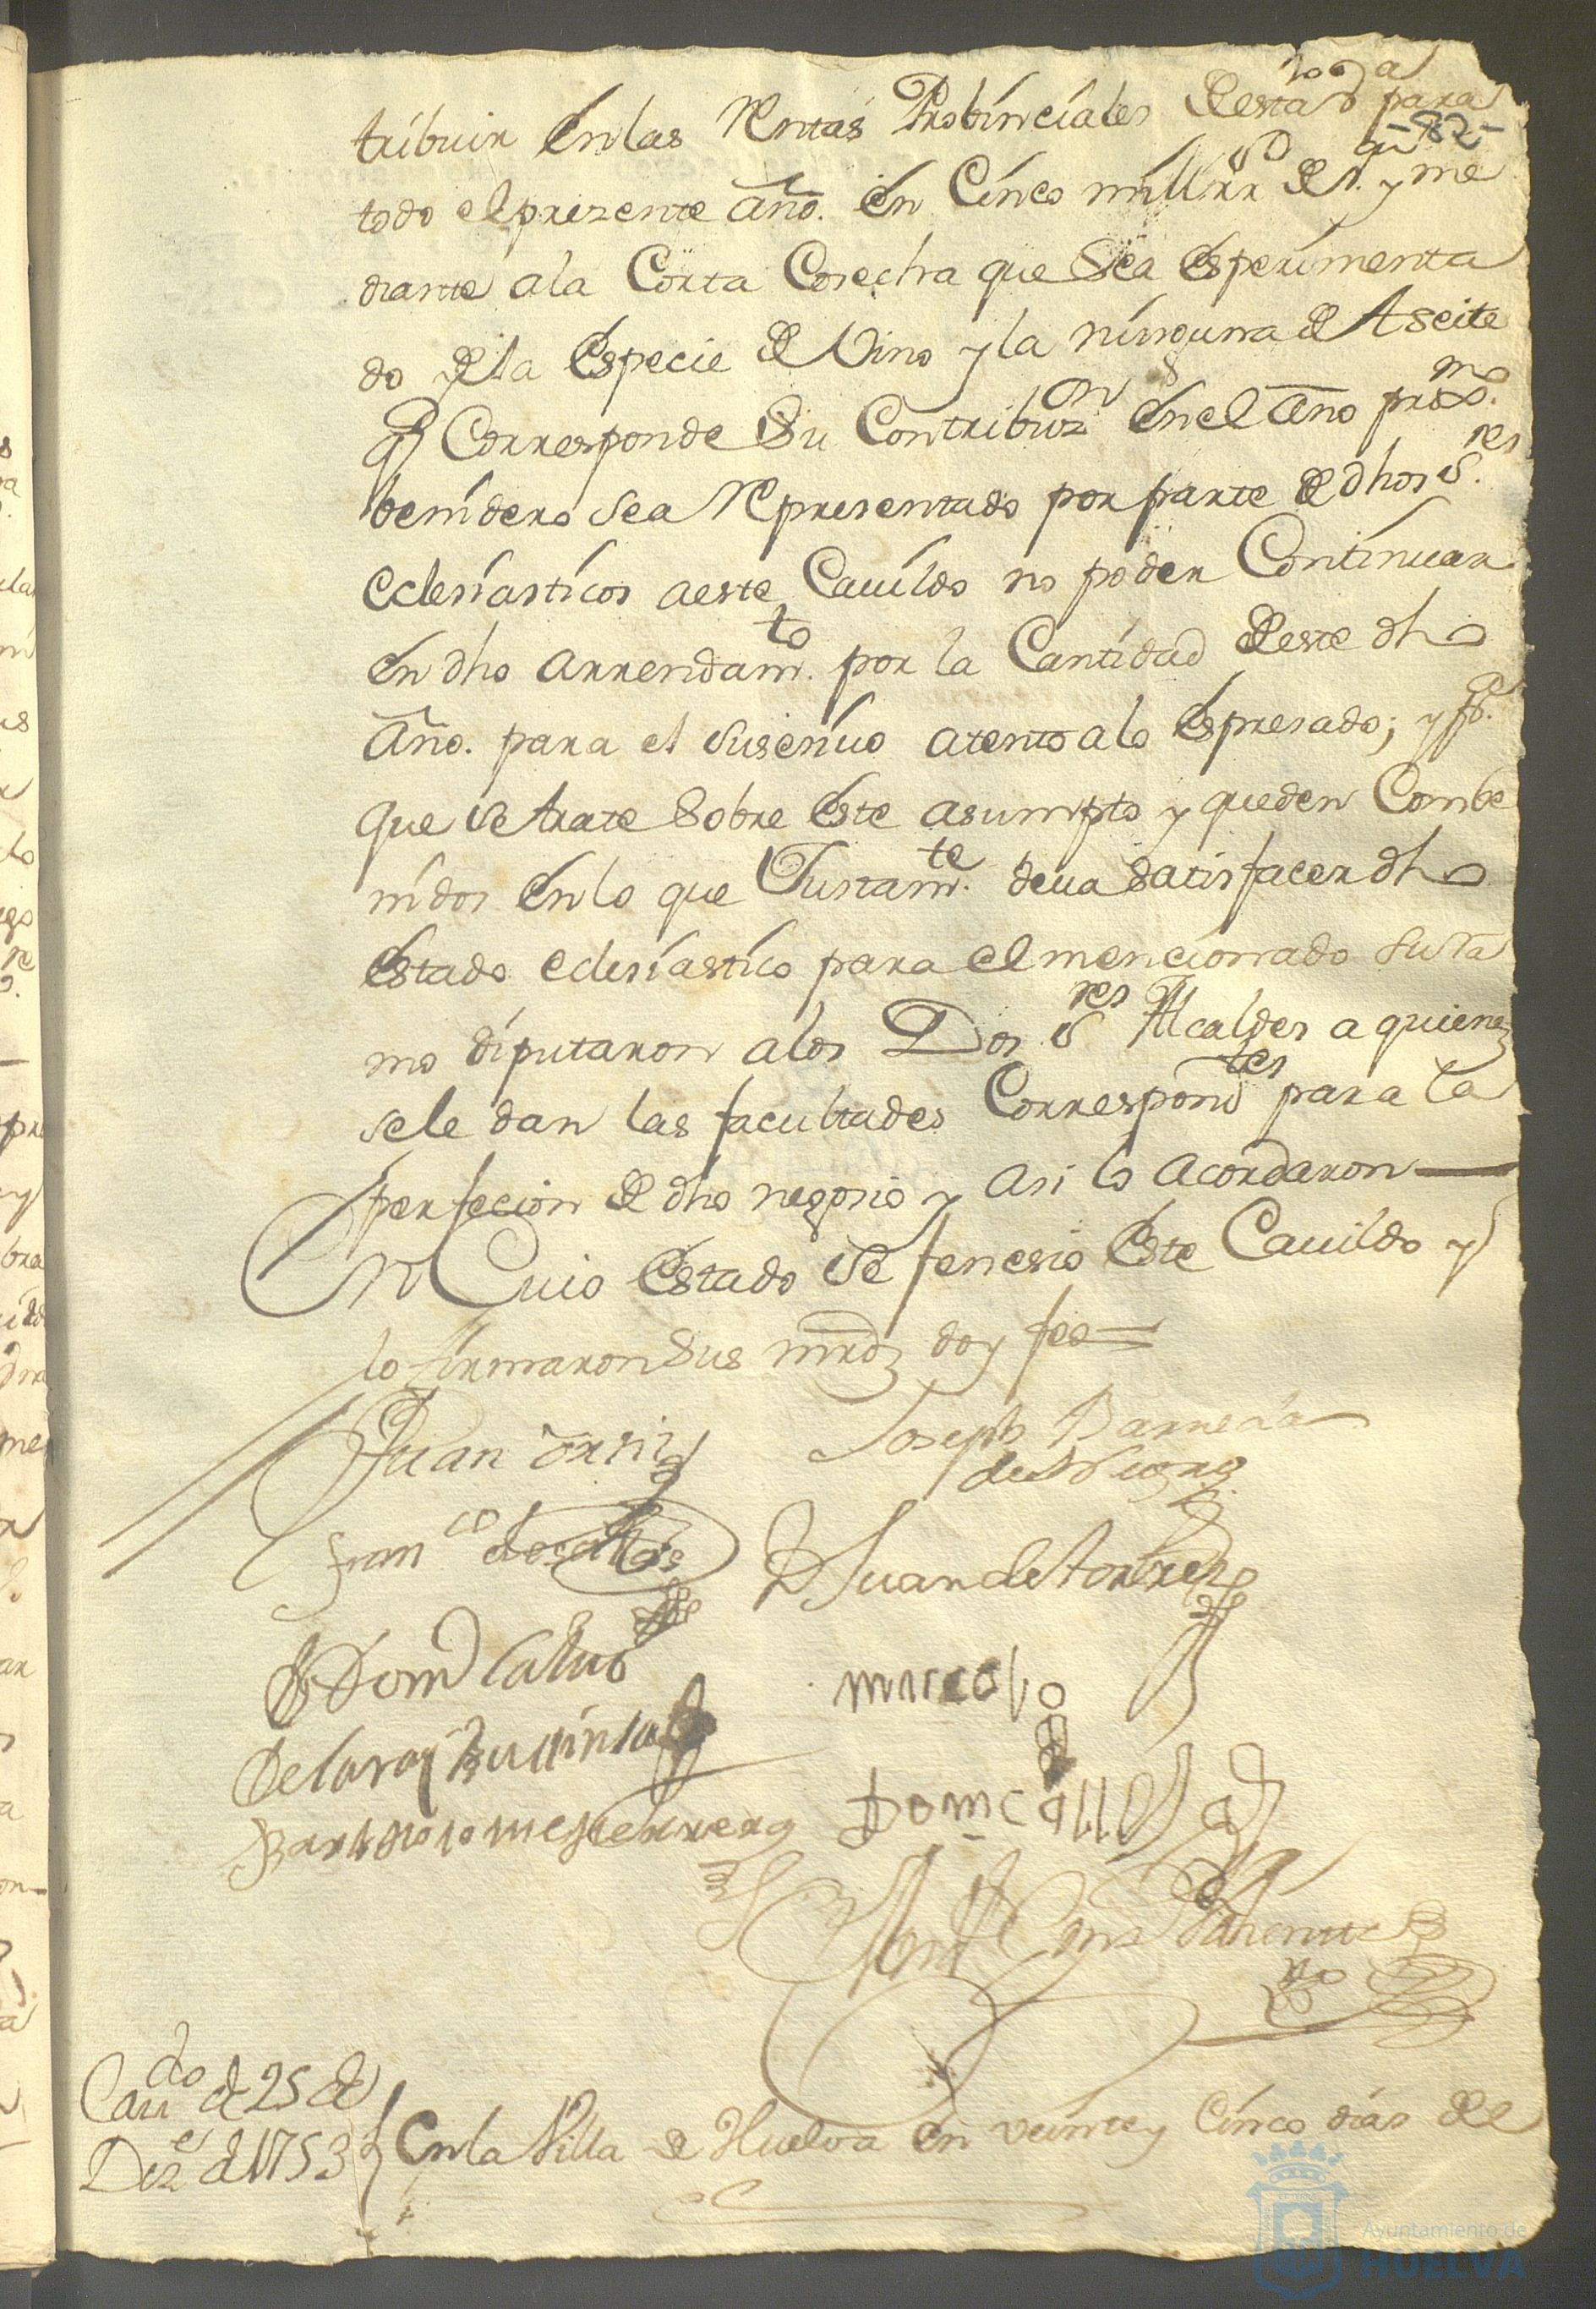 tribuir en las Rentas Probinciales de esta va para
-82-
todo el prezente año. en Cinco mill rr de vn. y me
diante a la Corta Cosecha que Sea esperimenta
do de la especie de Vino y la ninguna de Aseite
q Corresponde Su Contribuzon en el año proxmo.
benidero sea Representado por parte de dhos sres.
eclesiasticos a este Cauildo no poder Continuar
en dho arrendamto. por la Cantidad de este dho
año. para el susesiuo atento a lo espresado; y pa.
que se trate Sobre este asumpto y queden Combe
nidos en lo que Justamte. deua Satisfacer dho
estado eclesiastico para el mencionado su ra
mo diputaron a los Dos sres Alcaldes a quienes
se le dan las facultades Correspondtes para la
perfecion de dho negosio y asi lo acordaron
En Cuio estado se fenesio este Cauildo y
lo firmaron Sus mrds doy fee=
Juan orsiz
Joseph Barreda
Franco
D Juan de
D Domo Caluo
de lara y
Bartolome
Caudo de 25 de
Dize de 1753
En la Villa de Huelva en veinte y Cinco dias de
Ayuntamiento de
HUELVA